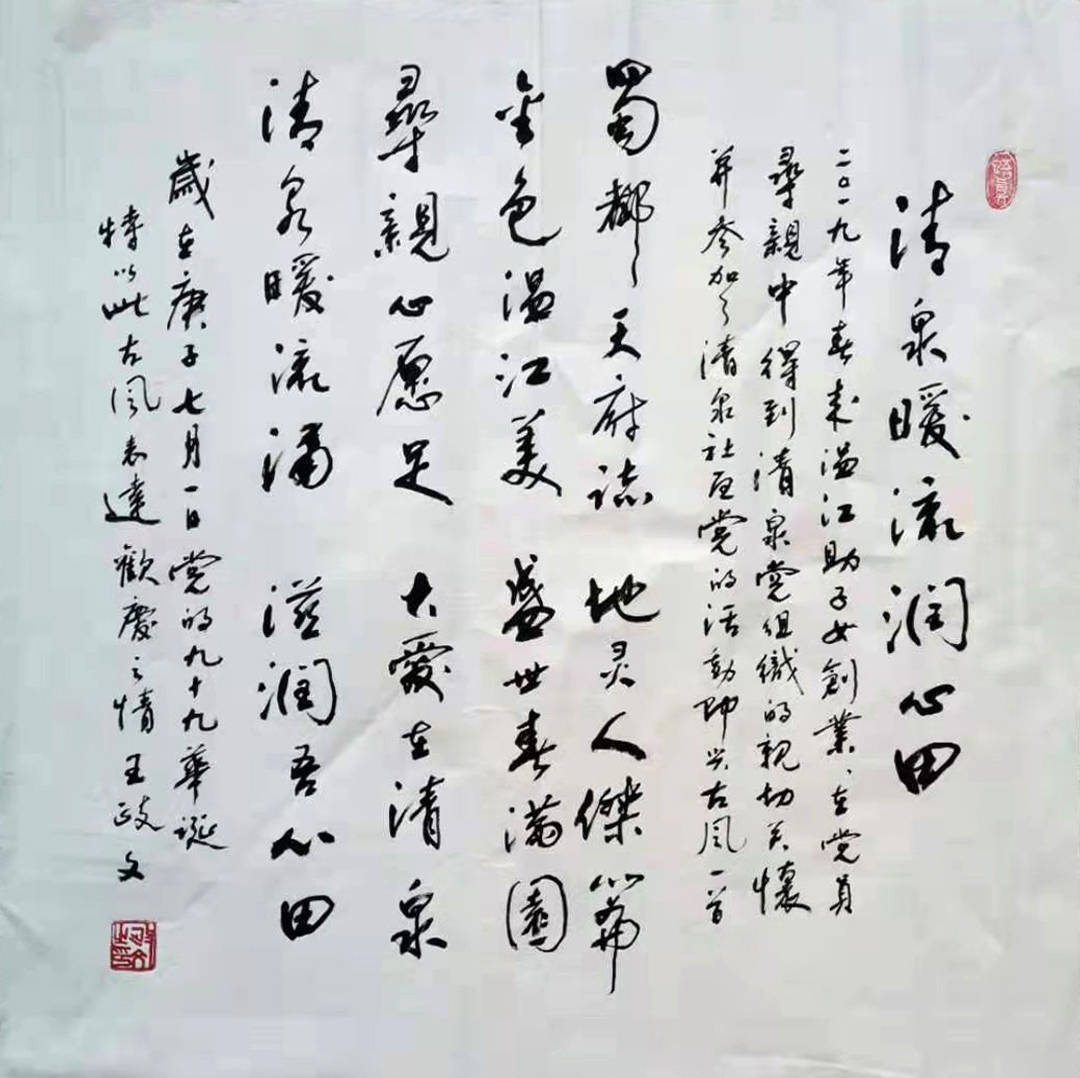 清泉暖流润心田
二〇一九年春来温江助子女創業、在党員
尋親中得到清泉党组織的親切关懷
并参加了清泉社区党的活動即兴古風一首
蜀都天府誌 地灵人傑篇
金色温江美 盛世春满園
尋親心愿足 大愛在清泉
清泉暖流涌 滋润吾心田
歲在庚子七月一日党的九十九華誕
特以此古風表達歡慶之情 王政文